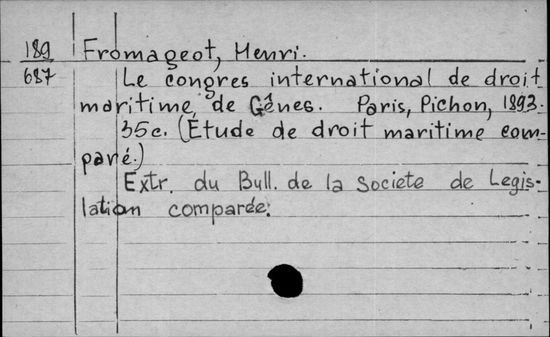 189 Fromageot, Henri.
687 Le congres international de droit
maritime de Gênes. Paris, Pichon, 1893.
35c. (Étude de droit maritime com-
paré.)
Extr. du Bull. de la Societe de Legis-
lation comparée.